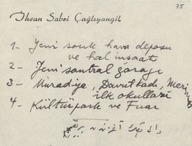 75
İhsan Sabri Çağlayangil
1- Yeni soğuk hava deposu
ve hal inşaatı
2- Yeni santral garajı
3- Muradiye, Davutkadı,
ilk okulları
4- Kültürpark ve Fuar